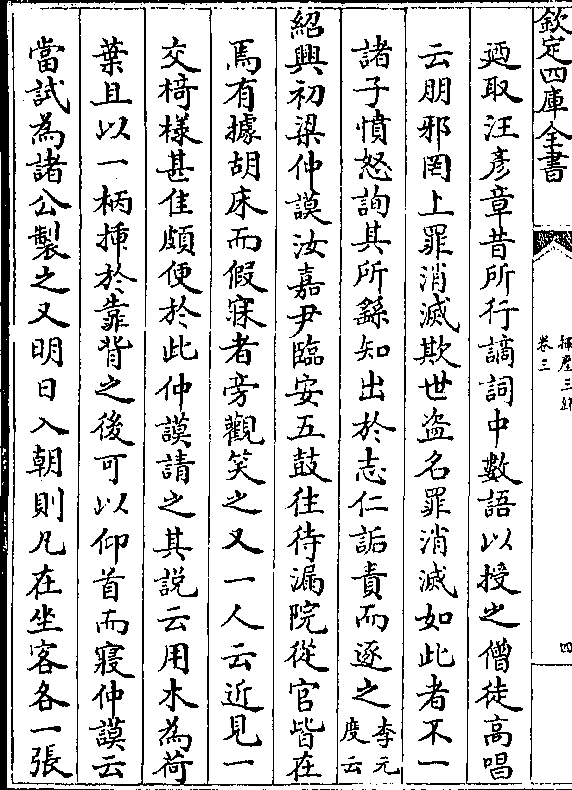 欽定四庫全書
揮麈三錄
卷三
四
廼取汪彥章昔所行謫詞中數語以授之僧徒高唱
云朋邪罔上罪消滅欺世盜名罪消滅如此者不一
諸子憤怒詢其所繇知出於志仁詬責而逐之李元
度云
紹興初梁仲謨汝嘉尹臨安五鼓往待漏院從官皆在
焉有據胡床而假寐者旁觀笑之又一人云近見一
交椅樣甚佳頗便於此仲謨請之其說云用木為荷
葉且以一柄揷於靠背之後可以仰首而寢仲謨云
當試為諸公製之又明日入朝則凡在坐客各一張